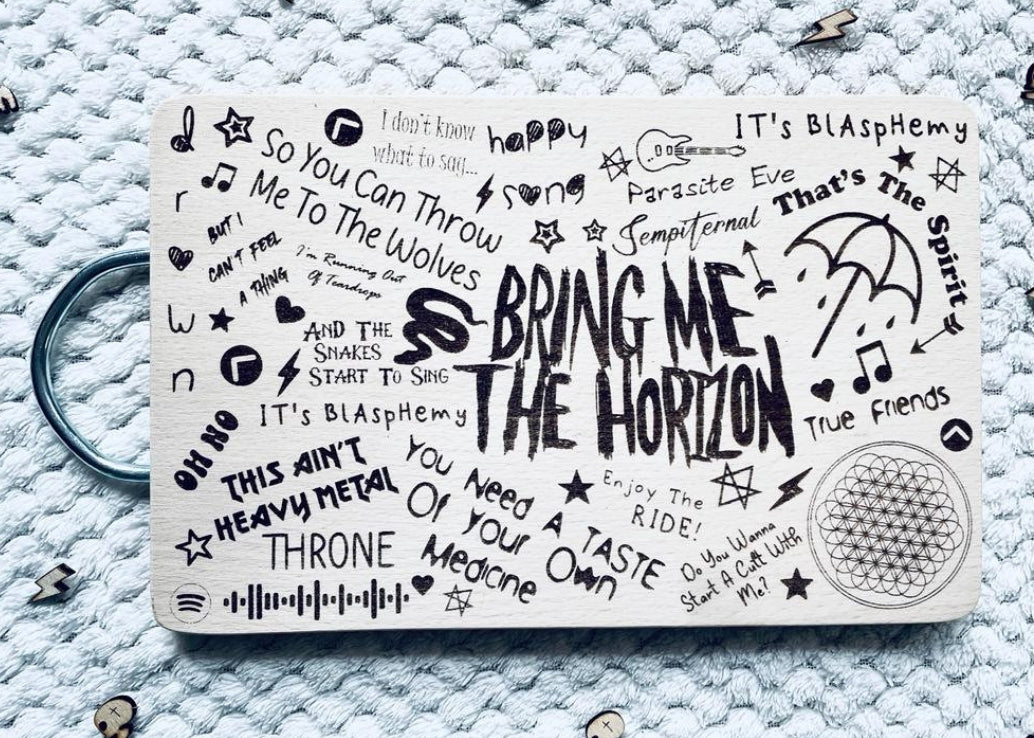 I don't know
what to say...
happy
song
IT's BlAspHemy
Parasite Eve
That's The Spirit
Sempiternal
So You Can Throw
Me To The Wolves
d
r
o
w
n
BUT I
CAN'T FEEL
A THING
I'm Running Out
Of Teardrops
AND THE
SNAKES
START TO SING
BRING ME
THE HORIZON
True Friends
IT's BlAspHemy
OH NO
THIS AIN'T
HEAVY METAL
THRONE
You Need A TASTE
Of Your Own
Medicine
Enjoy The
RIDE!
Do You Wanna
Start A Cult With
Me?